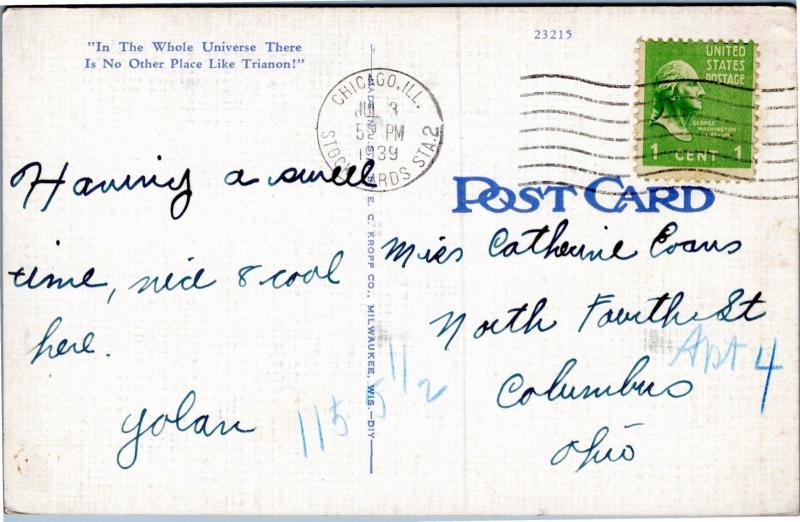 "In The Whole Universe There
Is No Other Place Like Trianon!"
23215
CHICAGO, ILL.
JUL 3
5 PM
1939
STOCK YARDS STA. 2
UNITED
STATES
POSTAGE
GEORGE
WASHINGTON
1 CENT 1
POST CARD
E. C. KROPP CO., MILWAUKEE, WIS.-DIY
Having a swell
time, nice & cool
here.
Yolan
Miss Catherine Evans
North Fourth St
Apt 4
Columbus
Ohio
115 5 1/2